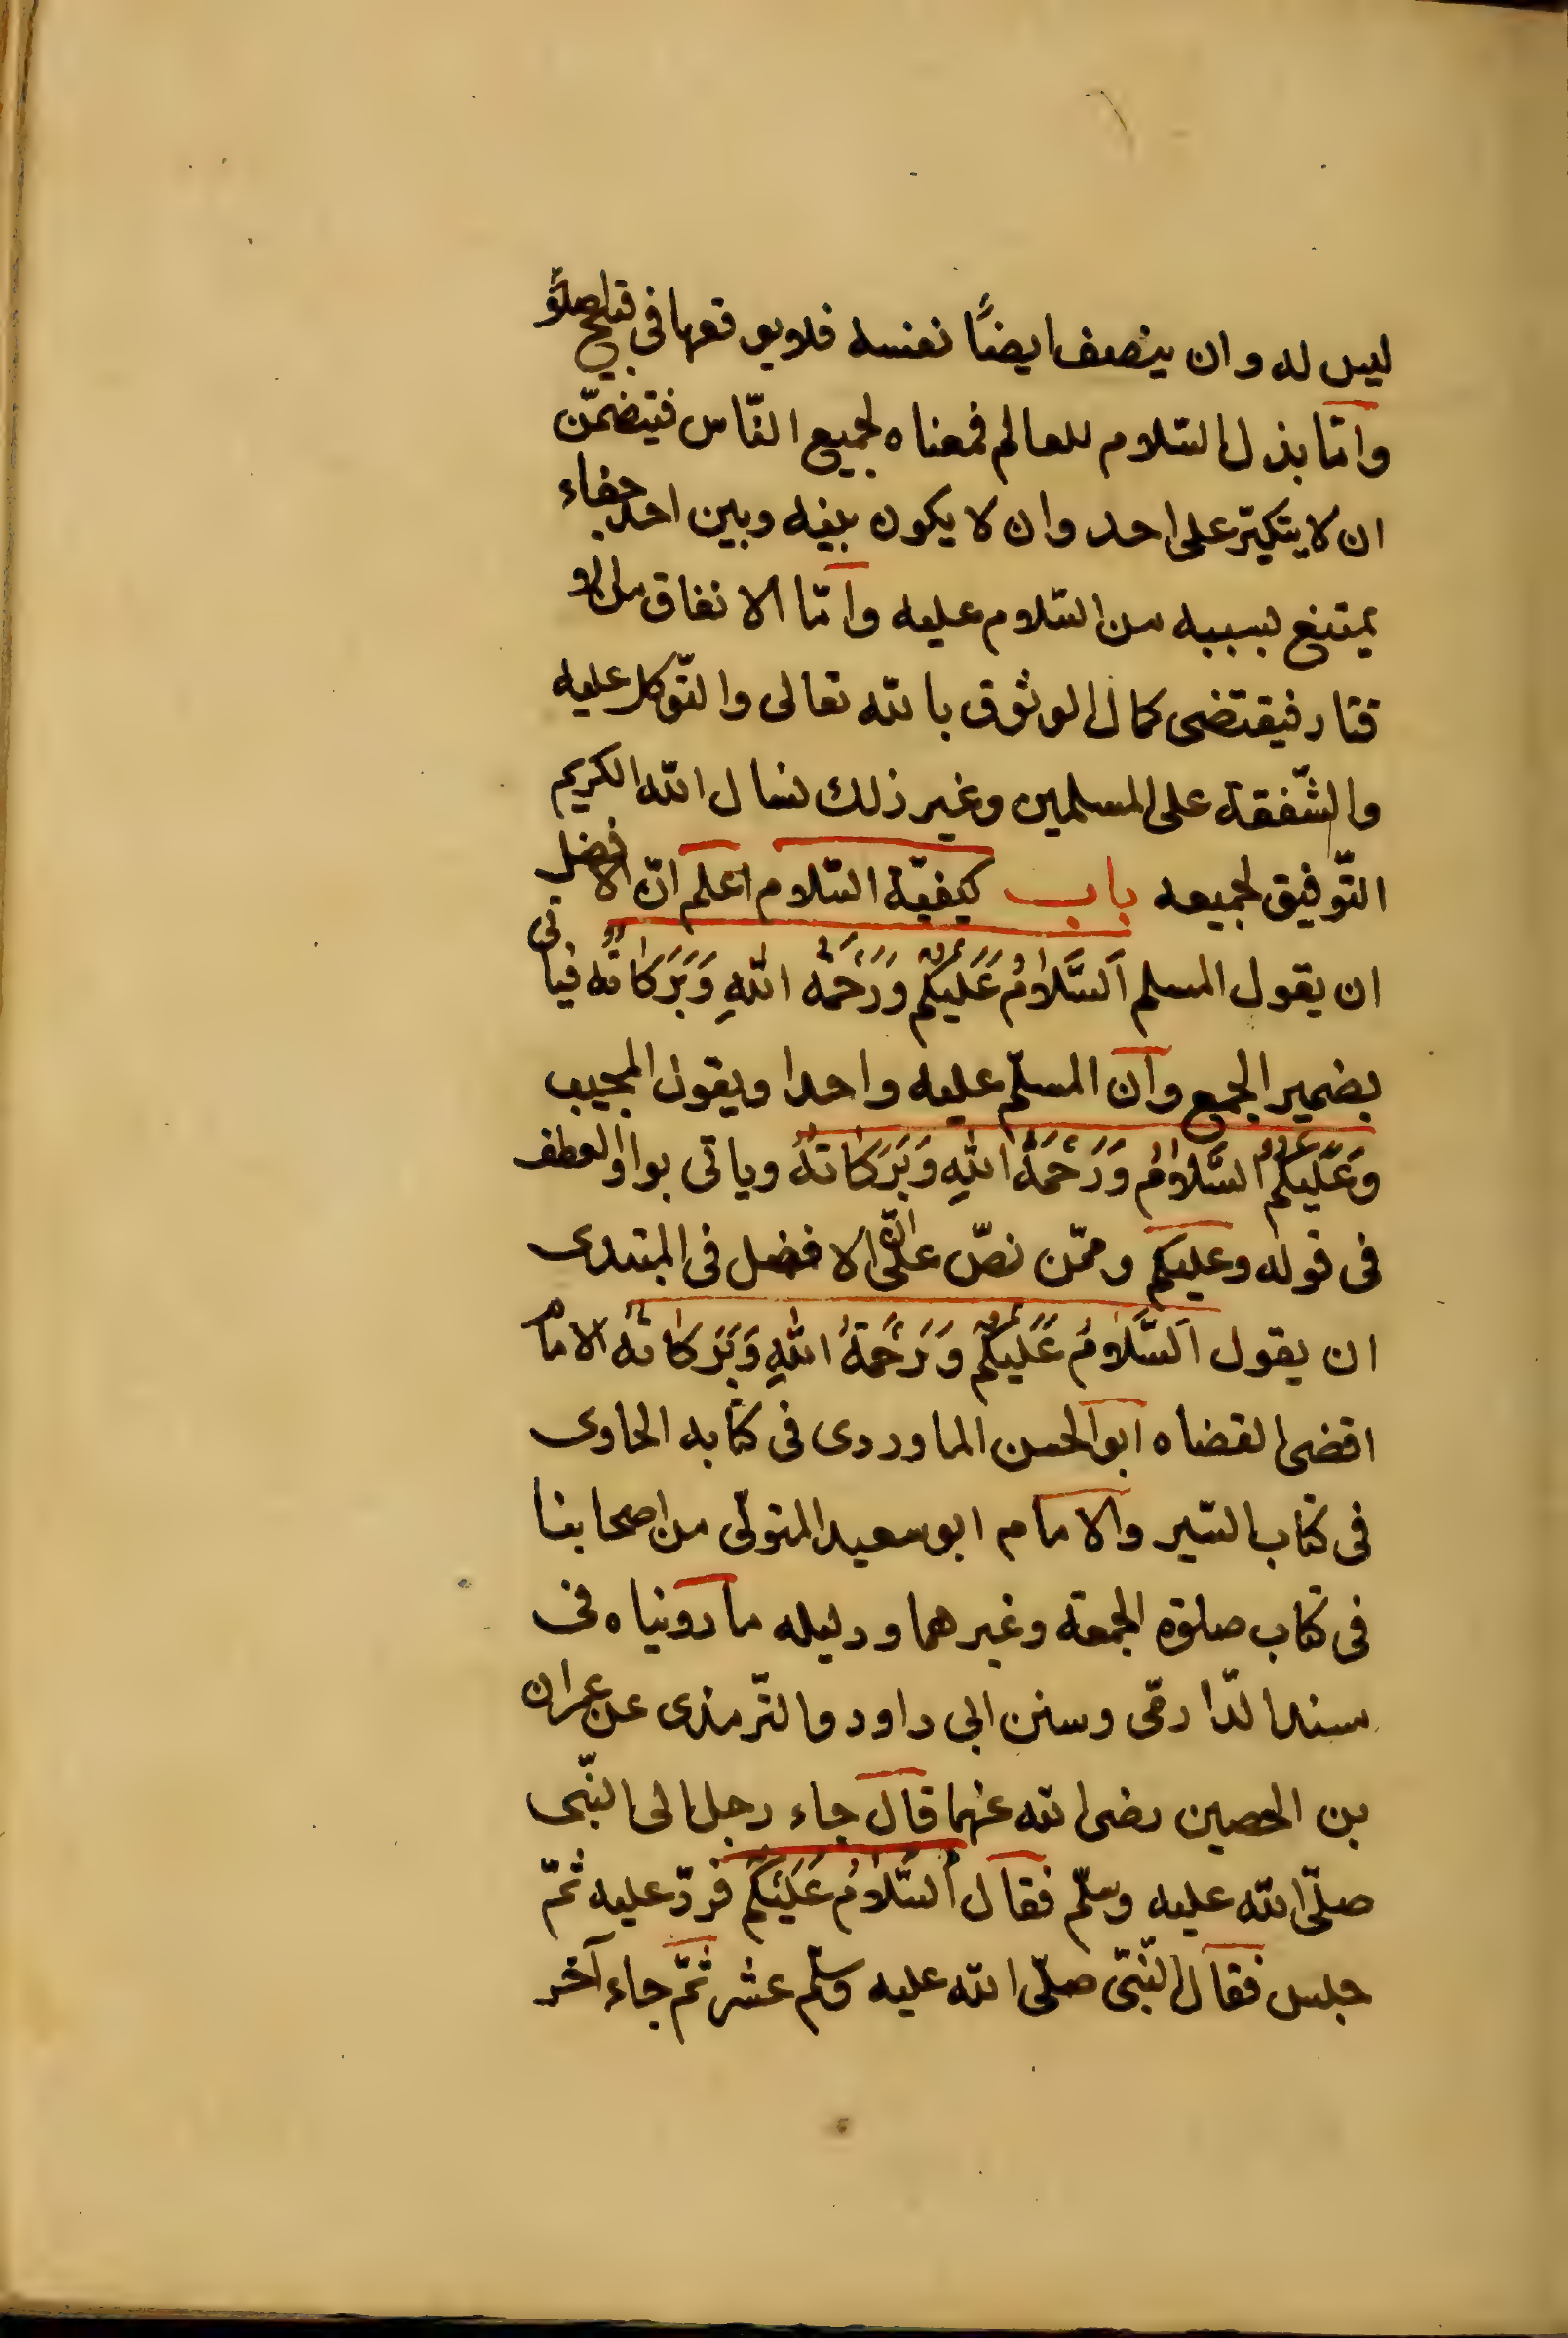 ليس له وان ينصف ايضًا نفسه فلا يوقعها في قبيح اصلاً
وامّا بذل السّلام للعالم فمعناه لجميع النّاس فيتضمّن
ان لا يتكبّر على احد وان لا يكون بينه وبين احد جفاء
يمتنع بسببه من السّلام عليه وامّا الانفاق من الا
قتار فيقتضى كمال الوثوق بالله تعالى والتّوكل عليه
والشّفقة على المسلمين وغير ذلك نسال الله الكريم
التّوفيق لجميعه باب كيفيّة السّلام اعلم انّ الافضل
ان يقول المسلم اَلسَّلَامُ عَلَيكُم وَرَحْمَةُ اللهِ وَبَرَكَاتُه فياتى
بضمير الجمع وان المسلّم عليه واحدا ويقول المجيب
وَعَلَيكُمُ السَّلَامُ وَرَحْمَةُ اللهِ وَبَرَكَاتُهُ وياتى بواو العطف
فى قوله وعليكم وممّن نصّ على انّ الافضل فى المبتدى
ان يقول اَلسَّلَامُ عَلَيكُم وَرَحْمَةُ اللهِ وَبَرَكَاتُه الامام
اقضى القضاه ابو الحسن الماوردى فى كتابه الحاوى
فى كتاب السّير والامام ابو سعيد المتولّى من اصحابنا
فى كتاب صلوة الجمعة وغيرهما ودليله ما روىناه فى
سند الدّارمّى وسنن ابى داود والتّرمذى عن عمران
بن الحصين رضى الله عنهما قال جاء رجل الى النّبى
صلّى الله عليه وسلّم فقال اَلسَّلَامُ عَلَيْكُم فردّ عليه ثمّ
جلس فقال النّبىّ صلّى الله عليه وسلّم عشر ثمّ جاء آخر